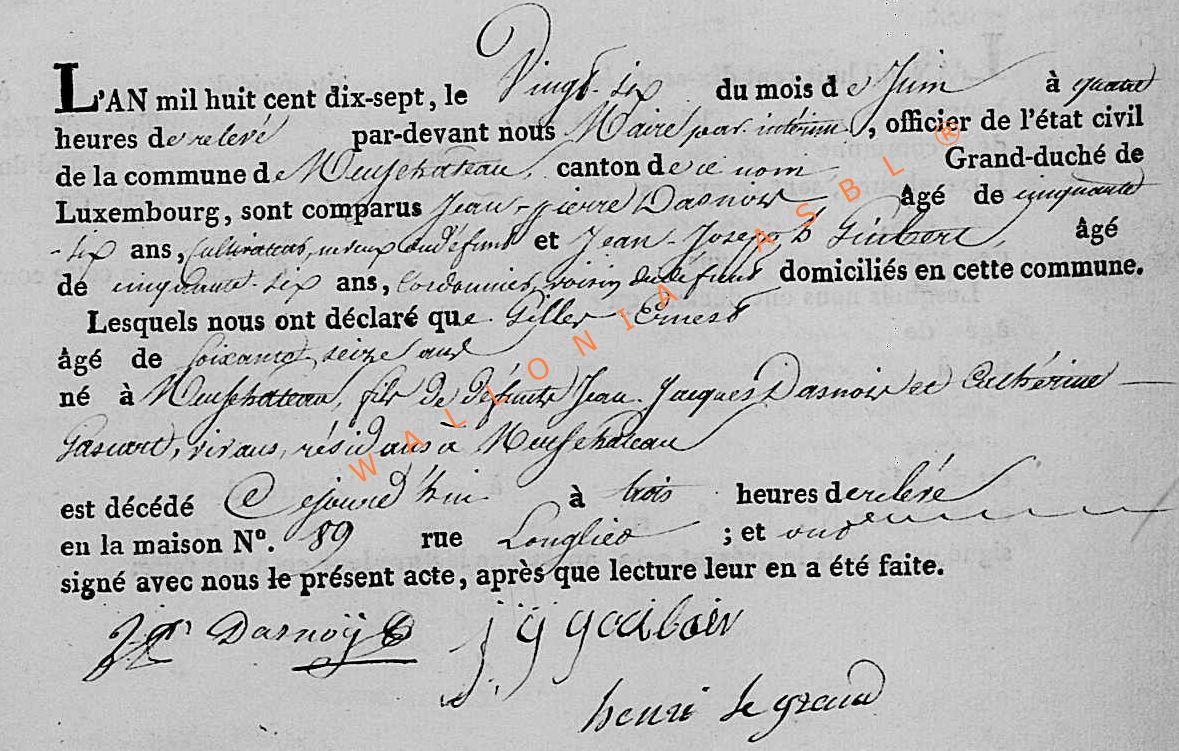 L'AN mil huit cent dix-sept, le Vingt-six du mois de Juin à quatre
heures de relevé par-devant nous Maire par intérim, officier de l'état civil
de la commune de Neufchateau, canton de ce nom Grand-duché de
Luxembourg, sont comparus Jean-pierre Dasnois âgé de cinquante
-six ans, Cultivateur, neveux du défunt et Jean-Joseph âgé
de cinquante-six ans, Cordonnier, voisin du défunt domiciliés en cette commune.
Lesquels nous ont déclaré que Gilles Ernest
âgé de soixante seize ans
né à Neufchateau, fils de défunts Jean-Jacques Dasnois et Cathérine
vivans, résidans à Neufchateau
est décédé Cejourd'hui à trois heures de relevé
en la maison N°. 89 rue Longlier ; et ont
signé avec nous le présent acte, après que lecture leur en a été faite.
Dasnoÿ
henri le grand
WALLONIA ASBL ®